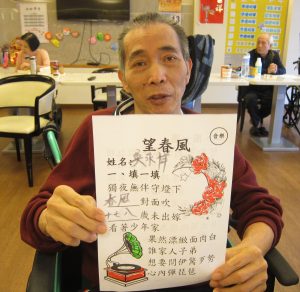 音樂
望春風
姓名:
一、填一填
獨夜無伴守燈下
春風 對面吹
十七八 歲未出嫁
看著少年家
果然漂緻面肉白
誰家人子弟
想要問伊驚歹勢
心內彈琵琶